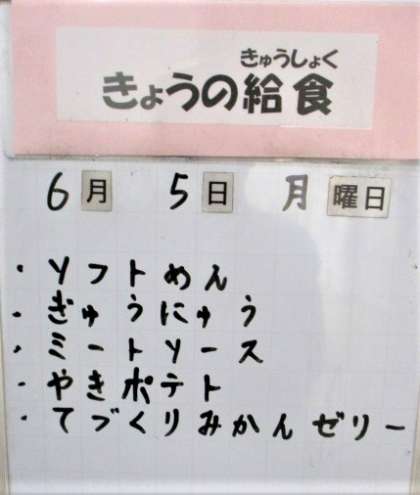 きゅうしょく
きょうの給食
6月 5日 月曜日
・ソフトめん
・ぎゅうにゅう
・ミートソース
・やきポテト
・てづくりみかんゼリー